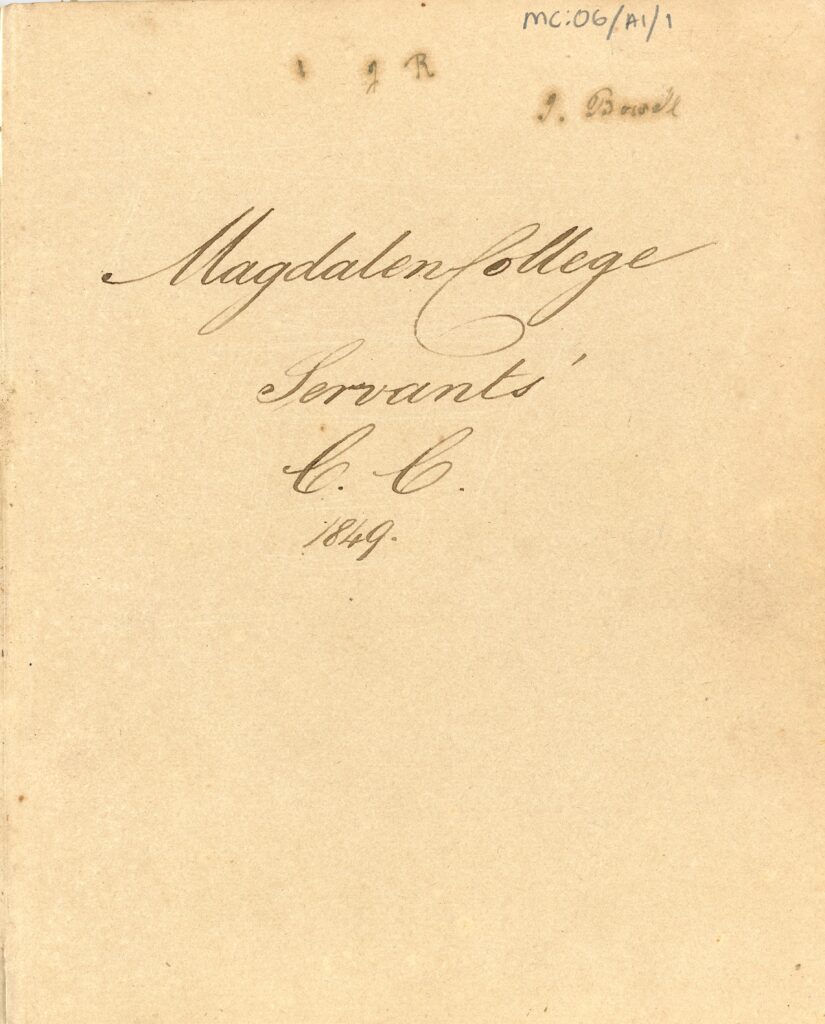 MC:06/A1/1
J R
J. Bowell
Magdalen College
Servants'
C. C.
1849.